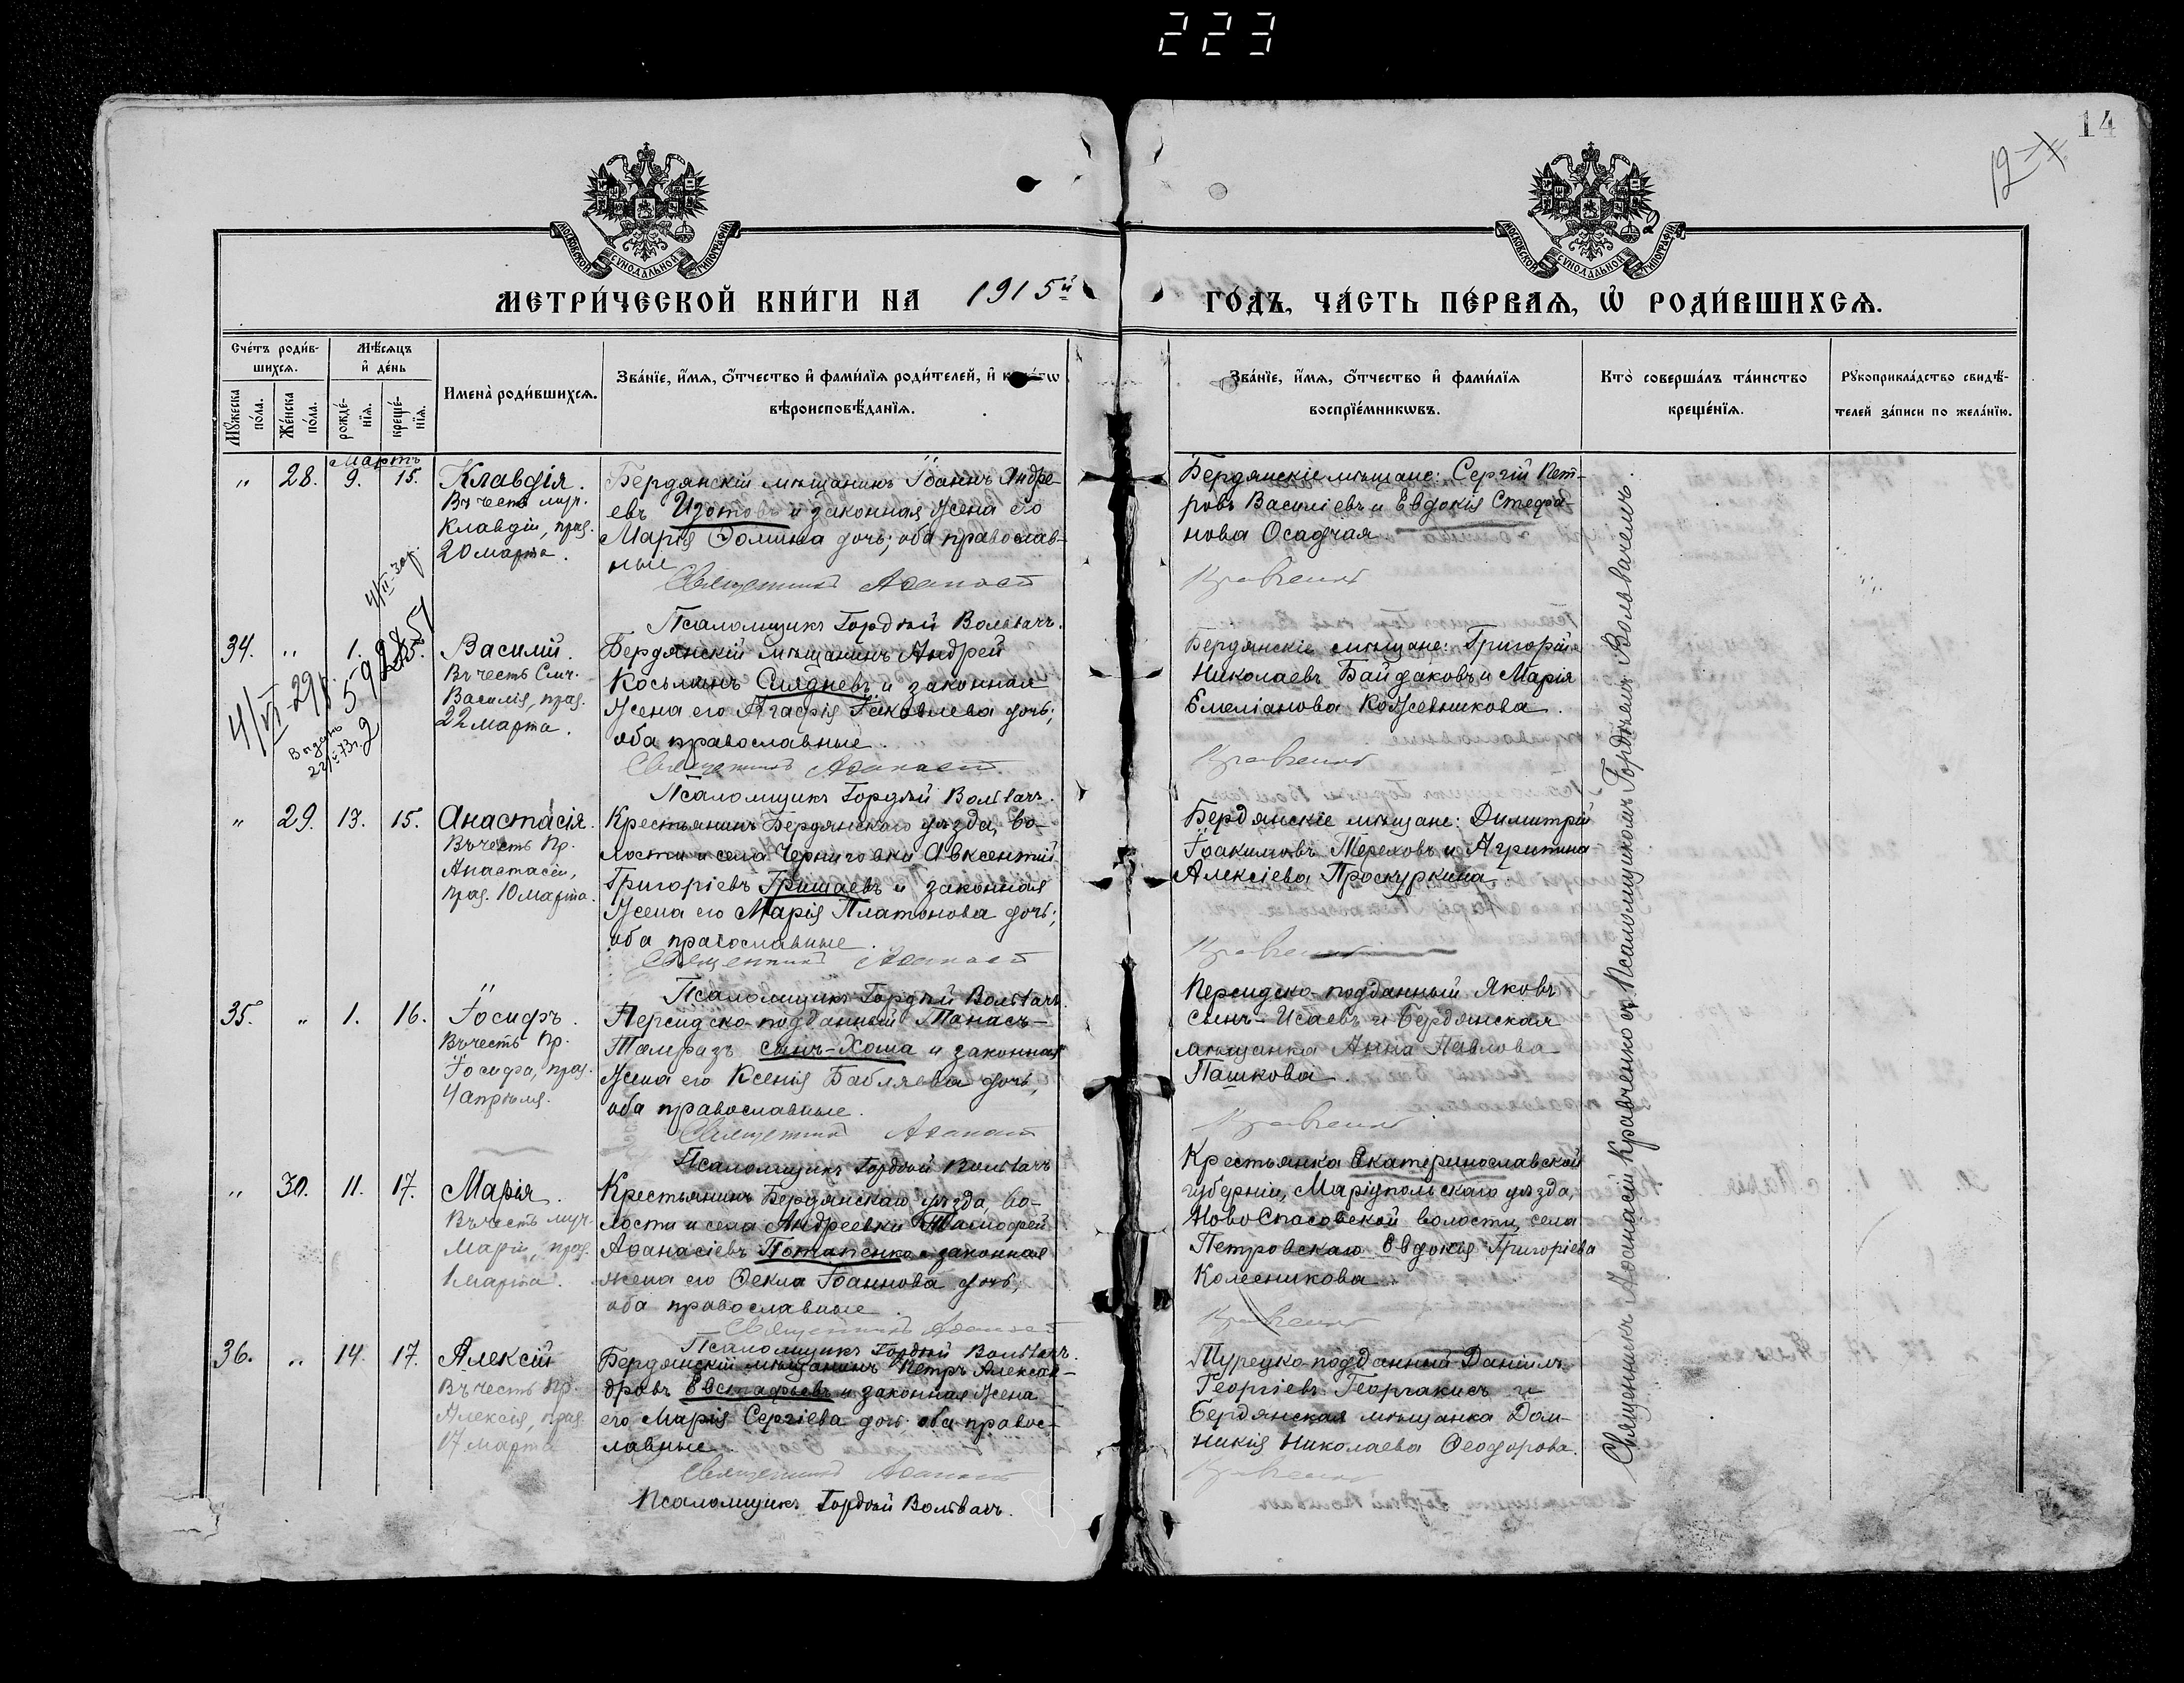 223
14
12
МОСКОВСКОЙ СУНОДАЛЬНОЙ ТИПОГРАФІИ
МОСКОВСКОЙ СУНОДАЛЬНОЙ ТИПОГРАФІИ
МЕТРИ́ЧЕСКОЙ КНИ́ГИ НА 1915й ГО́ДЪ, ЧА́СТЬ ПЕ́РВАѦ, Ѽ РОДИ́ВШИХСѦ.
Счéтъ роди́в-
шихсѧ.
Мѣ́сѧцъ
и҆ де́нь
Мꙋ́жеска
по́ла.
Же́нска
по́ла.
рожде́-
нїѧ.
креще́-
нїѧ.
Имена̀ роди́вшихсѧ.
Зва́нїе, и҆́мѧ, ѻ҆́тчество и҆ фами́лїѧ роди́телей, и҆
вѣроисповѣ́данїѧ.
Зва́нїе, и҆́мѧ, ѻ҆́тчество и҆ фами́лїѧ
воспрїе́мникѡвъ.
Кто̀ соверша́лъ та́инство
креще́нїѧ.
Рꙋкоприкла́дство свидѣ́-
телей за́писи по жела́нїю.
Мартъ
„ 28. 9. 15.
Клавдія.
Въ честь муч.
Клавдіи, праз.
20 марта.
Бердянскій мѣщанинъ Іоаннъ Андре-
евъ Изотовъ и законная жена его
Марія Ѳомина дочь; оба православ-
ные
Священникъ Аѳанасій
Псаломщикъ Гордѣй Волвачъ.
Бердянскіе мѣщане: Сергій Пет-
ровъ Василіевъ и Евдокія Стефа-
нова Осадчая
Кравченко
34. „ 1. 15.
Василій.
Въ честь Смч.
Василія, праз.
22 марта.
4/VI-29г.
Выдано
Бердянскій мѣщанинъ Андрей
Косьминъ Слѣдневъ и законная
жена его Агафія Іаковлева дочь;
оба православные.
Священникъ Аѳанасій
Псаломщикъ Гордѣй Волвачъ.
Бердянскіе мѣщане: Григорій
Николаевъ Байдаковъ и Марія
Емеліанова Кожевникова.
Кравченко
„ 29. 13. 15.
Анастасія.
Въ честь Пр.
Анастасіи,
праз. 10 марта.
Крестьянинъ Бердянскаго уѣзда, во-
лости и села Черниговки Авксентий
Григоріевъ Гришаевъ и законная
жена его Марія Платонова дочь;
оба православные.
Священникъ Аѳанасій
Псаломщикъ Гордѣй Волвачъ.
Бердянскіе мѣщане: Димитрій
Іоакимовъ Тереховъ и Агрипина
Алексіева Проскуркина
Кравченко
35. „ 1. 16.
Іосифъ.
Въ честь Пр.
Іосифа, праз.
4 апрѣля.
Персидско-подданный Танасъ-
Тамразъ сынъ-Хоша и законная
жена его Ксенія Бабляева дочь,
оба православные.
Священникъ Аѳанасій
Псаломщикъ Гордѣй Волвачъ
Персидско-подданный Яковъ
сынъ-Исаевъ и Бердянская
мѣщанка Анна Павлова
Пашкова.
Кравченко
„ 30. 11. 17.
Марія.
Въ честь муч.
Маріи, праз.
1 марта.
Крестьянинъ Бердянскаго уѣзда, во-
лости и села Андреевки Тимофей
Аѳанасіевъ Потапенко и законная
жена его Ѳекла Іоаннова дочь;
оба православные.
Священникъ Аѳанасій
Псаломщикъ Гордѣй Волвачъ.
Крестьянка Екатеринославской
губерніи, Маріупольскаго уѣзда,
НовоСпасовской волости, села
Петровскаго Евдокія Григоріева
Колесникова.
Кравченко
36. „ 14. 17.
Алексій
Въ честь Пр.
Алексія, праз.
17 марта
Бердянскій мѣщанинъ Петръ Алексан-
дровъ Евстафьевъ и законная жена
его Марія Сергіева дочь; оба правос-
лавные.
Священникъ Аѳанасій
Псаломщикъ Гордѣй Волвачъ.
Турецко-подданный Даніилъ
Георгіевъ Георгакисъ и
Бердянская мѣщанка Дом-
никія Николаева Ѳеодорова.
Кравченко
Священникъ Аѳанасій Кравченко съ Псаломщикомъ Гордѣемъ Волвачемъ.